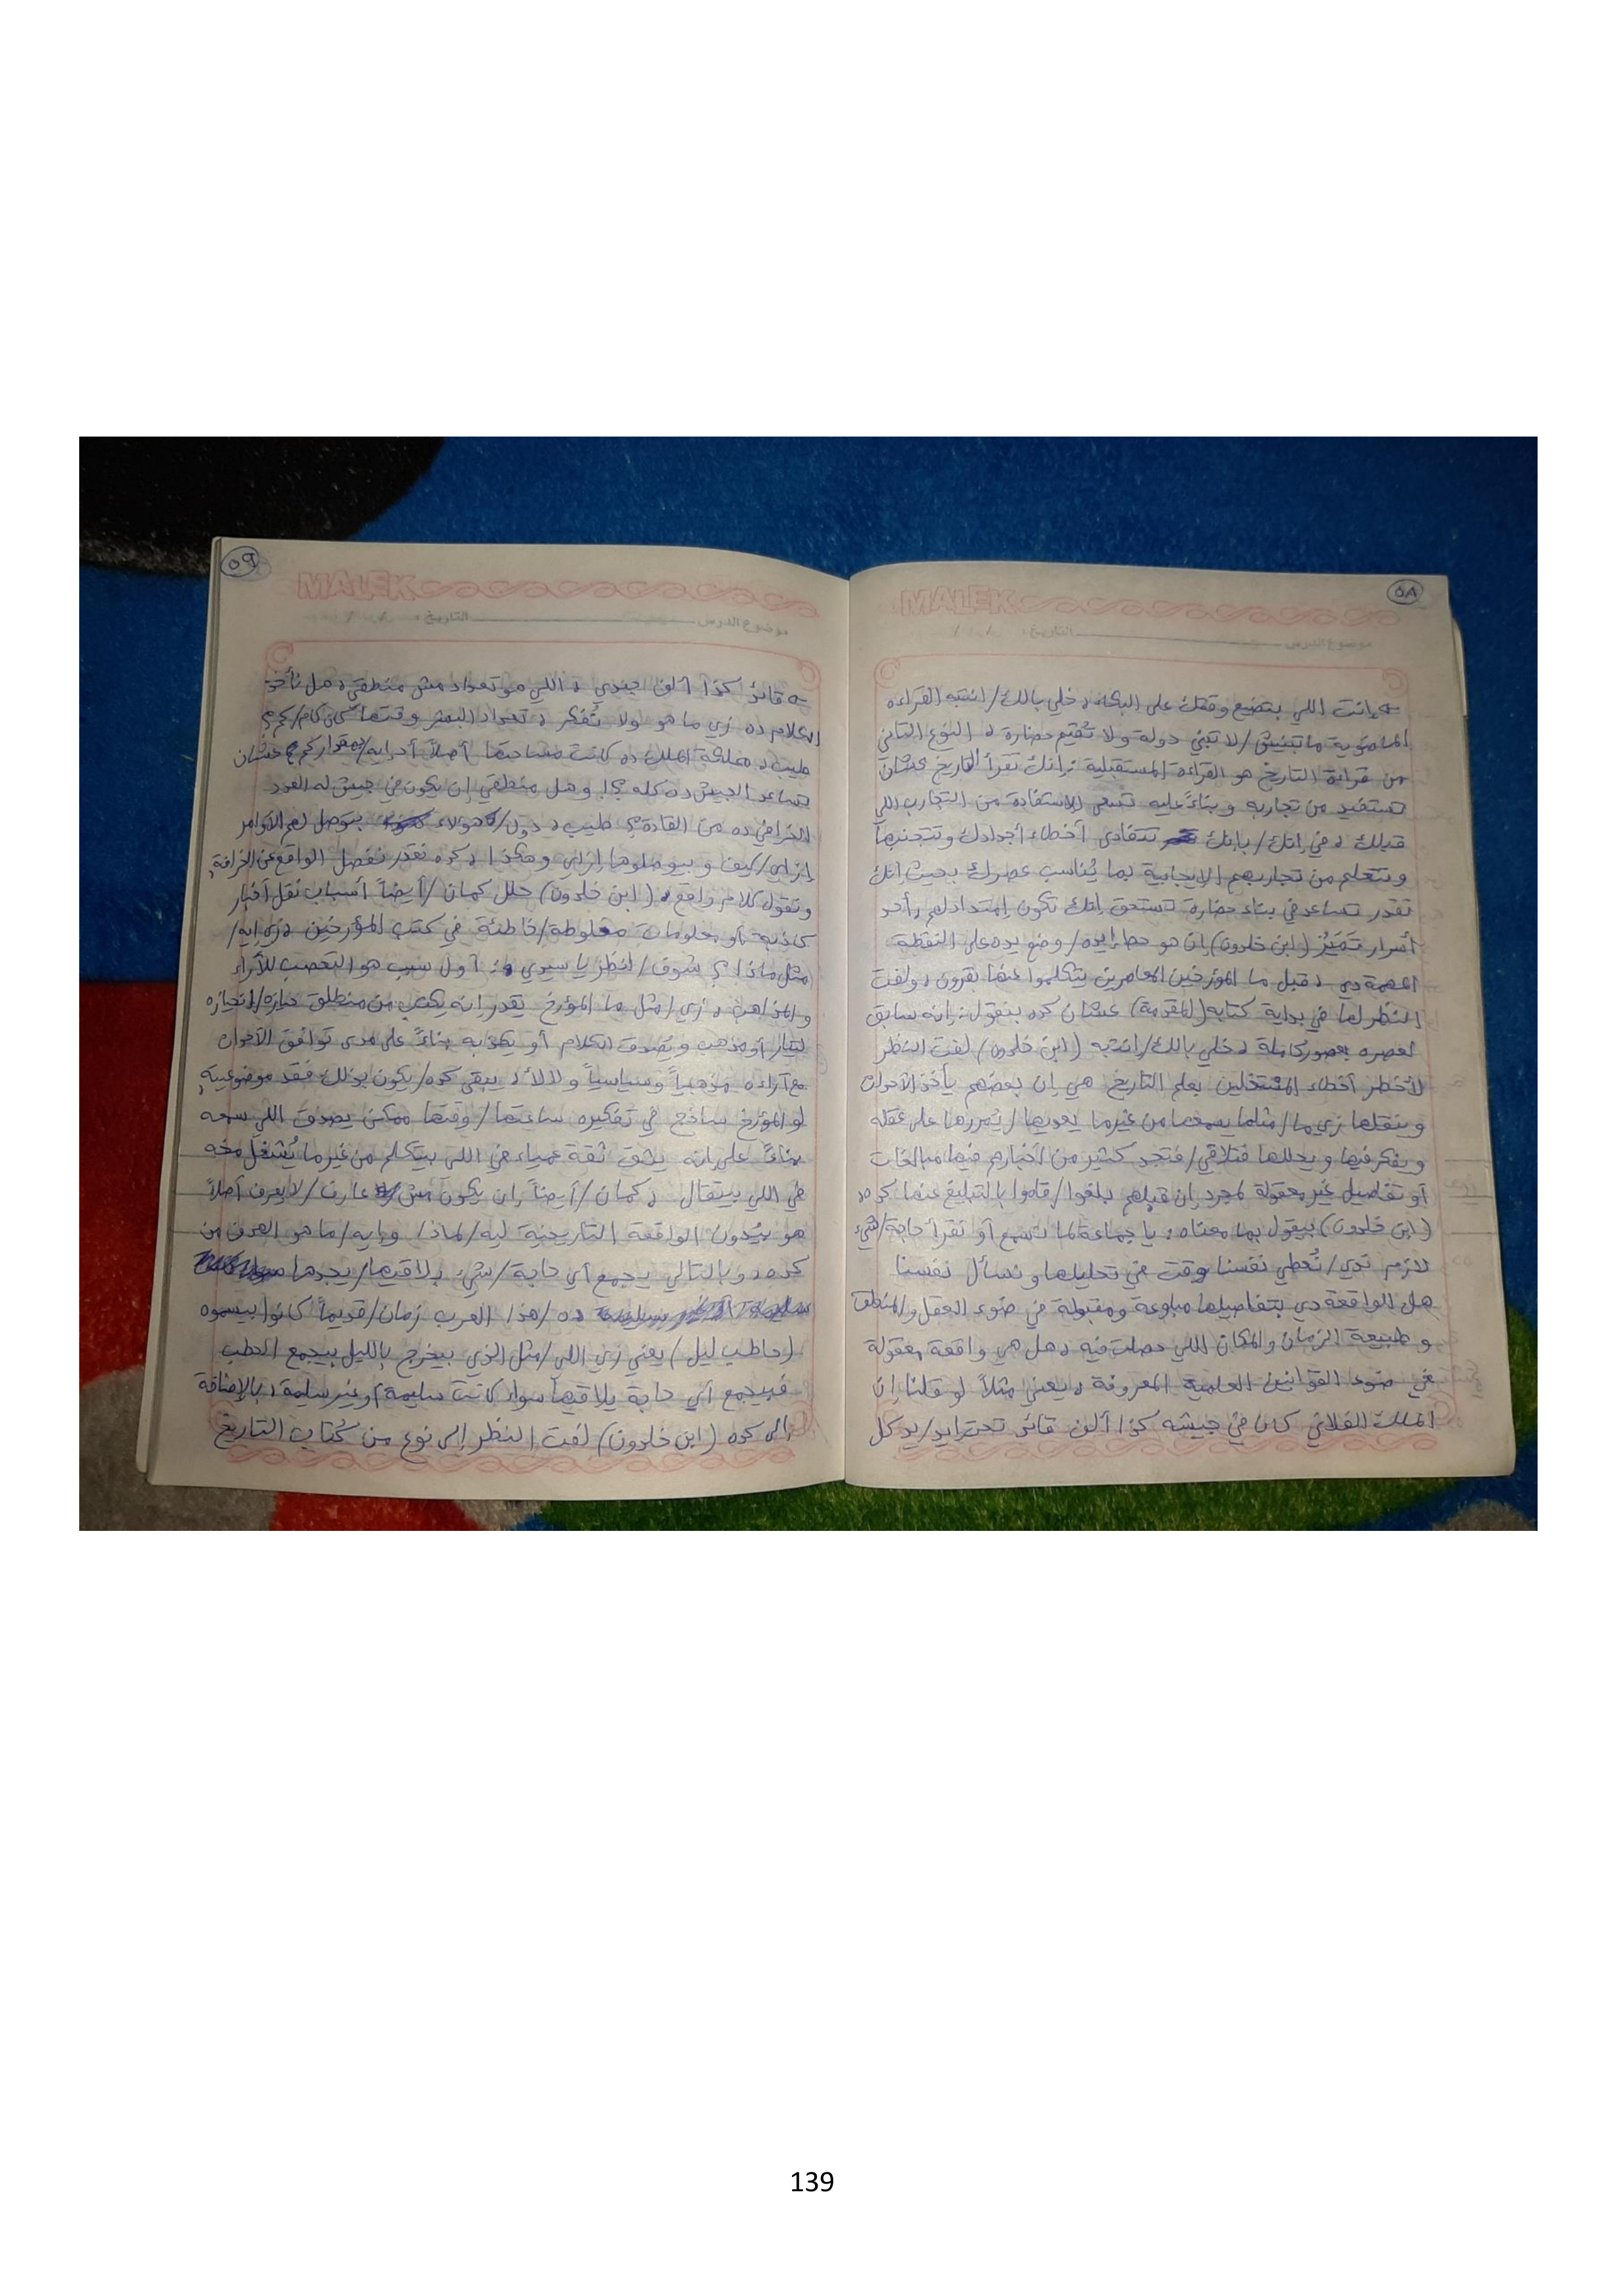 ٥٨
MALEK
موضوع الدرس التاريخ : / /
إنت اللي بتضيع وقتك على البكاء، خلي بالك/إنتبه القراءه
الماضوية ما تبنيش/لا تبني دولة ولا تُقيم حضارة، النوع التاني
من قراءة التاريخ هو القراءة المستقبلية إنك تقرأ التاريخ عشان
تستفيد من تجاربه وبناءً عليه تسعى للاستفادة من التجارب اللي
قبلك، في إنك/بإنك تتفادى أخطاء أجدادك وتتجنبها
وتتعلم من تجاربهم الإيجابية بما يُناسب عصرك بحيث إنك
تقدر تساعد في بناء حضارة تستحق إنك تكون إمتداد لهم، أحد
أسرار تَمَيُز (ابن خلدون) إن هو حط إيده/وضع يده على النقطة
المهمة دي، قبل ما المؤرخين المعاصرين يتكلموا عنها بقرون، ولفت
النظر لها في بداية كتابه (المقدمة) عشان كده بنقول: إنه سابق
لعصره بعصور كاملة، خلي بالك/إنتبه (ابن خلدون) لفت النظر
لأخطر أخطاء المشتغلين بعلم التاريخ هي إن بعضهم يأخذ الأحداث
وينقلها زي ما/مثلما يسمعها من غير ما يعديها/يُمررها على عقله
ويفكر فيها ويحللها فتلاقي/فتجد كتير من أخبارهم فيها مبالغات
أو تفاصيل غير معقولة لمجرد إن قبلهم بلغوا/قاموا بالتبليغ عنها كده
(ابن خلدون) بيقول بما معناه: يا جماعة لما نسمع أو نقرأ حاجة/شيء
لازم ندي/نُعطي نفسنا وقت في تحليلها ونسأل نفسنا
هل الواقعة دي بتفاصيلها مبلوعة ومقبولة في ضوء العقل والمنطق
و طبيعة الزمان والمكان اللي حصلت فيه، هل هي واقعة معقولة
في ضوء القوانين العلمية المعروفة، يعني مثلاً لو قلنا إن
الملك الفلاني كان في جيشه كذا ألف قائد تحت إيد/يد كل
٥٩
MALEK
موضوع الدرس التاريخ : / /
قائد كذا ألف جندي، اللي هو تعداد مش منطقي، هل نأخذ
الكلام ده زي ما هو ولا نُفكر، تعداد البشر وقتها كان كام/كم؟
طيب، مملكة الملك ده كانت مساحتها أصلاً أد إيه/بمقدار كم؟ عشان
تساعد الجيش ده كله؟! وهل منطقي إن يكون في جيش له العدد
الخرافي ده من القادة؟ طيب، دول/هؤلاء بتوصل لهم الأوامر
إزاي/كيف وبيوصلوها إزاي وهكذا، كده نقدر نفصل الواقع عن الخرافة،
ونقول كلام واقع، (ابن خلدون) حلل كمان/أيضاً أسباب نقل أخبار
كاذبة أو معلومات مغلوطة/خاطئة في كتب المؤرخين، زي إيه/
مثل ماذا؟ شوف/انظر يا سيدي: أول سبب هو التعصب للأراء
والمذاهب، زي/مثل ما المؤرخ يقدر إنه يكتب من منطلق /إنحيازه
لتيار أو مذهب ويُصدق الكلام أو يكذبه بناءً على مدى توافق الأحداث
مع آراءه مذهبياً وسياسياً ولا لأ، يبقى كده/يكون بذلك فقد موضوعيته،
لو المؤرخ ساذج في تفكيره ساعتها/وقتها ممكن يصدق اللي سمعه
بناءً على إنه يثق ثقة عمياء في اللي بيتكلم من غير ما يُشغل مخه
في اللي بيتقال، كمان/أيضاً إن يكون مش عارف/لا يعرف أصلاً
هو بيُدون الواقعة التاريخية ليه/لماذا وإيه/ما هو الهدف من
كده، وبالتالي يجمع أي حاجة/شيء يلاقيها/يجدها
ده/هذا العرب زمان/قديماً كانوا بيسموه
(حاطب ليل) يعني زي اللي/مثل الذي بيخرج بالليل بيجمع الحطب
فبيجمع أي حاجة يلاقيها سواء كانت سليمة أو غير سليمة، بالإضافة
إلى كده (ابن خلدون) لفت النظر إلى نوع من كُتاب التاريخ
139